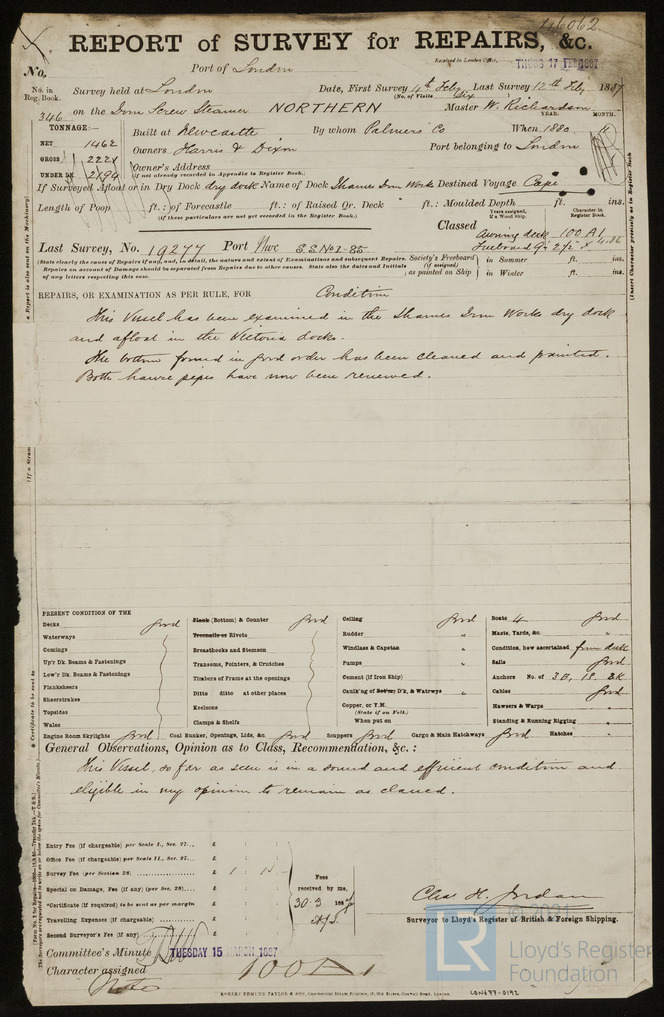 46062
REPORT of SURVEY for REPAIRS, &c.
Received in London Office, THURS 17 FEB 1887
No.
Port of London
No. in Reg. Book. Survey held at London Date, First Survey 4th Feby Last Survey 12th Feby 1887
(No. of Visits Six )
346 on the Iron Screw Steamer NORTHERN Master W. Richardson
TONNAGE:— YEAR. MONTH.
NET 1462 Built at Newcastle By whom Palmers Co When 1880 4
GROSS 2221 Owners Harris & Dixon Port belonging to London
UNDER DK 2194 Owner's Address
(if not already recorded in Appendix to Register Book.)
If Surveyed Afloat or in Dry Dock dry dock Name of Dock Thames Iron Works Destined Voyage Cape
Length of Poop ft.: of Forecastle ft.: of Raised Qr. Deck ft.: Moulded Depth ft. ins.
(if these particulars are not yet recorded in the Register Book.)
Years assigned, if a Wood Ship. Character in Register Book.
Classed Awning deck 100 A1
Freeboard 9. 2½" x 4.86
Last Survey, No. 19277 Port Nwc S.S. No1-85
(State clearly the cause of Repairs if any, and, in detail, the nature and extent of Examinations and subsequent Repairs.
Repairs on account of Damage should be separated from Repairs due to other causes. State also the dates and Initials
of any letters respecting this case.
Society's Freeboard (if assigned) as painted on Ship in Summer ft. ins.
in Winter ft. ins.
REPAIRS, OR EXAMINATION AS PER RULE, FOR Condition
This Vessel has been examined in the Thames Iron Works dry dock
and afloat in the Victoria docks.
The bottom found in good order has been cleaned and painted.
Both hawse pipes have now been renewed.
PRESENT CONDITION OF THE
Decks good
Waterways
Comings
Up'r Dk. Beams & Fastenings
Low'r Dk. Beams & Fastenings
Planksheers
Sheerstrakes
Topsides
Wales
Engine Room Skylights good
Plank (Bottom) & Counter good
Treenails or Rivets
Breasthooks and Stemson
Transoms, Pointers, & Crutches
Timbers of Frame at the openings
Ditto ditto at other places
Keelsons
Clamps & Shelfs
Coal Bunker, Openings, Lids, &c. good
Ceiling good
Rudder "
Windlass & Capstan "
Pumps "
Cement (if Iron Ship) "
Caulk'ng of Bottom, D'k, & Watrwys "
Copper, or Y.M.
(State if on Felt.)
When put on
Scuppers good Cargo & Main Hatchways good Hatches "
Boats 4 good
Masts, Yards, &c. "
Condition, how ascertained from deck
Sails good
Anchors No. of 3B, 1S, 2K
Cables good
Hawsers & Warps "
Standing & Running Rigging "
General Observations, Opinion as to Class, Recommendation, &c.:
This Vessel, so far as seen is in a sound and efficient condition and
eligible in my opinion to remain as classed.
Entry Fee (if chargeable) per Scale I., Sec. 27... £ : :
Office Fee (if chargeable) per Scale II., Sec. 27... £ : :
Survey Fee (per Section 28) £ 1 : 15 :
Special on Damage, Fee (if any) (per Sec. 28) £ : :
*Certificate (if required) to be sent as per margin £ : :
Travelling Expenses (if chargeable) £ : :
Second Surveyor's Fee (if any) £ : :
Fees received by me,
30.3 1887
Chas H. Jordan
Surveyor to Lloyd's Register of British & Foreign Shipping.
Committee's Minute TUESDAY 15 MARCH 1887
Character assigned 100 A 1
ROBERT EDMUND TAYLOR & SON, Commercial Steam Printers, 19, Old Street, Goswell Road, London.
LON697-0192
LR
Lloyd's Register
Foundation